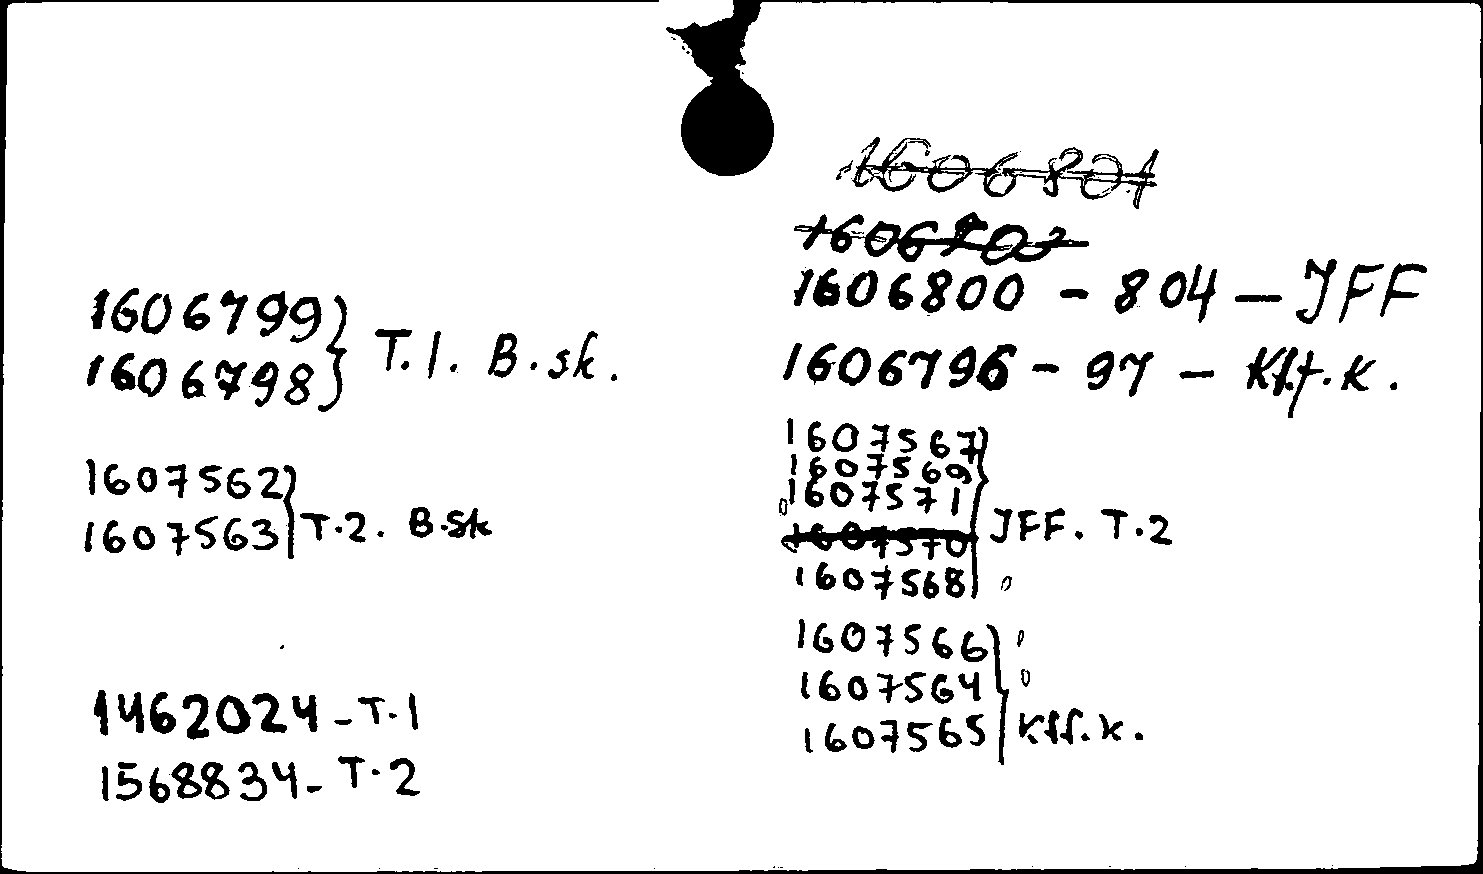 1606801
1606800 - 804 - JFF
1606796 - 97 - Kff.k.
1606799
1606798
T.1. B.sk.
1607562
1607563
T.2. B.sk
1607567
1607569
1607571
1607570
1607568
JFF. T.2
1607566
1607564
1607565
Kff.k.
1462024 - T.1
1568834 - T.2